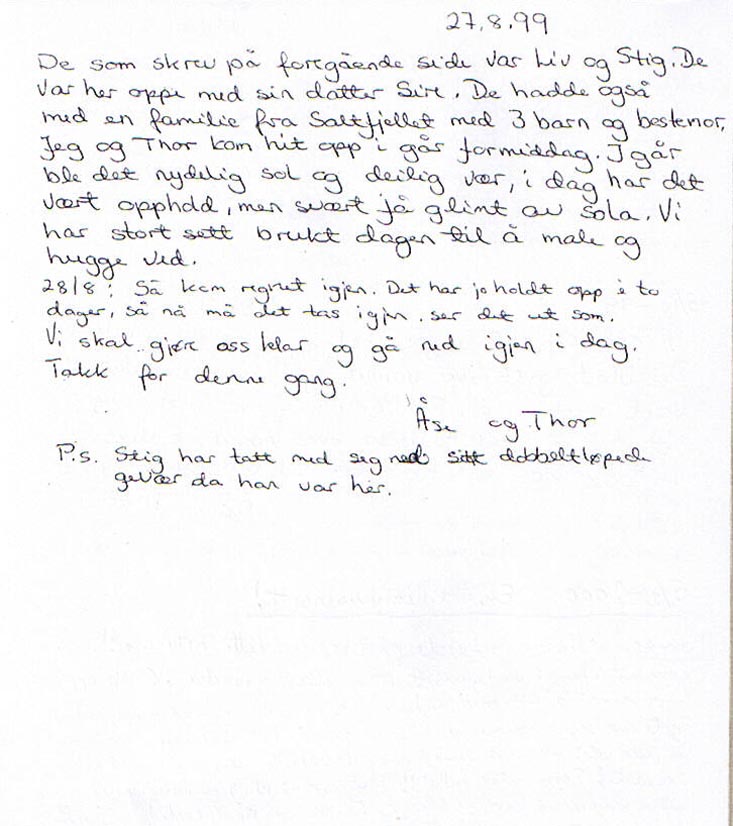 27.8.99
De som skrev på foregående side var Liv og Stig. De
var her oppe med sin datter Siri. De hadde også
med en familie fra Saltfjellet med 3 barn og bestemor,
Jeg og Thor kom hit opp i går formiddag. I går
ble det nydelig sol og deilig vær, i dag har det
vært opphold, men svært få glimt av sola. Vi
har stort sett brukt dagen til å male og
hugge ved.
28/8: Så kom regnet igjen. Det har jo holdt opp i to
dager, så nå må det tas igjen. ser det ut som.
Vi skal gjøre oss klar og gå ned igjen i dag.
Takk for denne gang.
Åse og Thor
P.s. Stig har tatt med seg ned sitt dobbeltløpede
gevær da han var her.